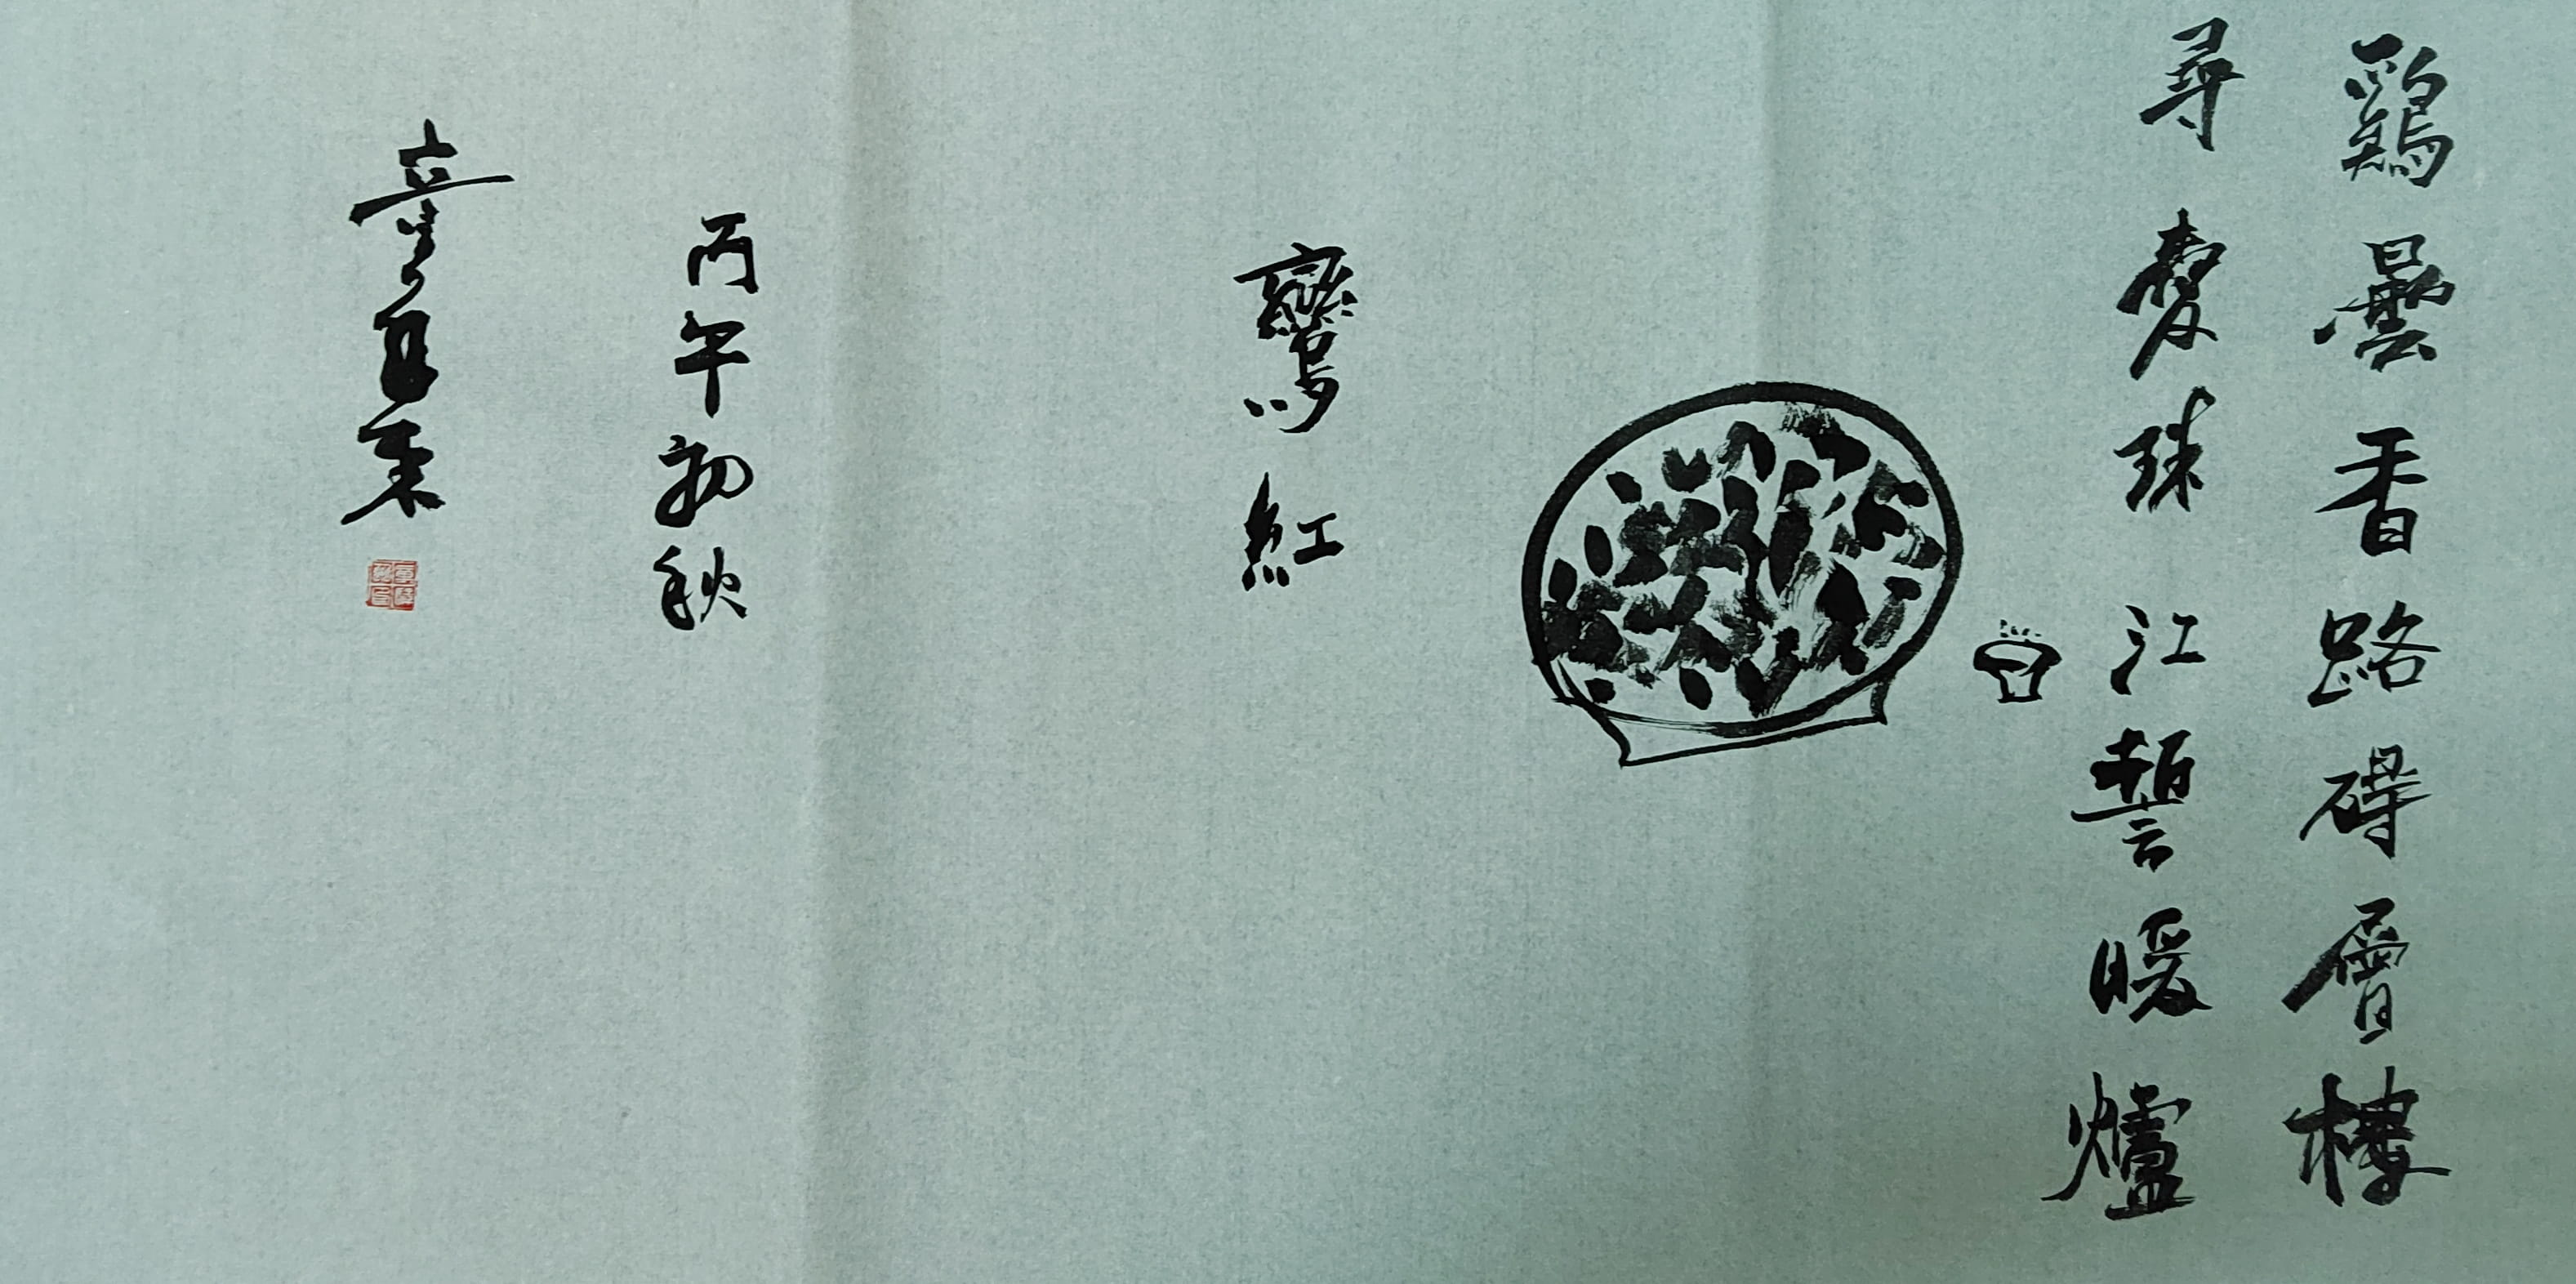 鷄曇香路碍層樓
尋麥珠江誓暖爐
鸞紅
丙午初秋